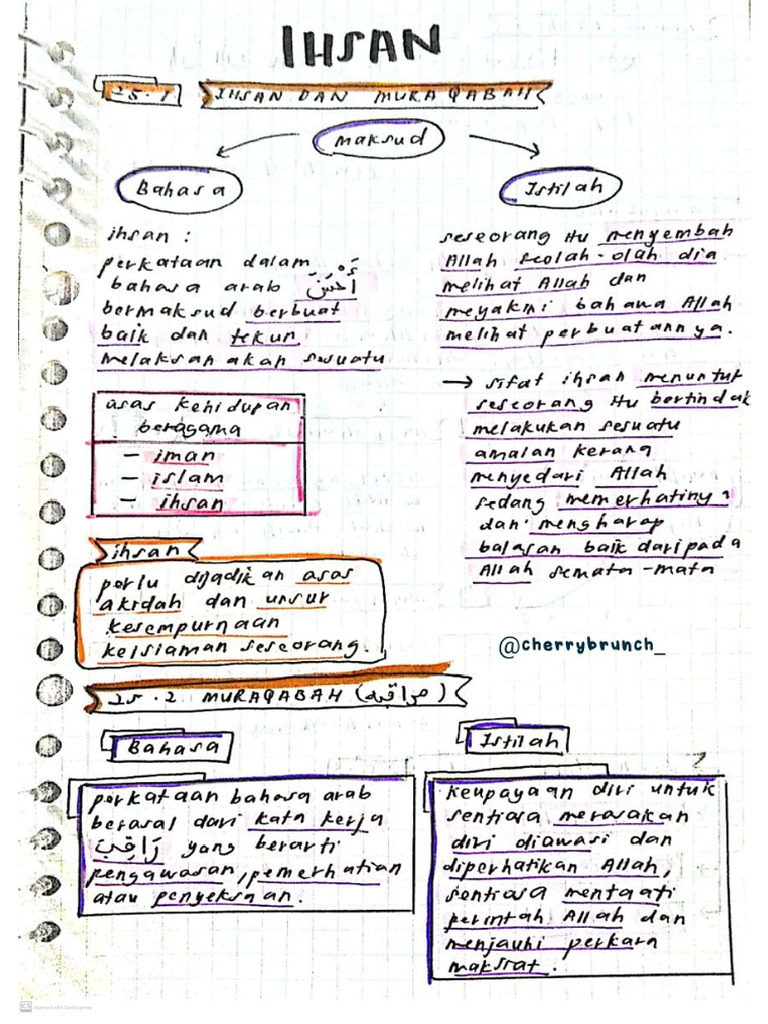 IHSAN
25.1 IHSAN DAN MURAQABAH
maksud
Bahasa
ihsan :
perkataan dalam
bahasa arab أَحْسَنَ
bermaksud berbuat
baik dan tekun
melaksanakan sesuatu
asas kehidupan
beragama
- iman
- islam
- ihsan
ihsan
perlu dijadikan asas
akidah dan unsur
kesempurnaan
keisiaman seseorang.
Istilah
seseorang itu menyembah
Allah seolah-olah dia
melihat Allah dan
meyakini bahawa Allah
melihat perbuatannya.
→ sifat ihsan menuntut
seseorang itu bertindak
melakukan sesuatu
amalan kerana
menyedari Allah
sedang memerhatiny?
dan mengharap
balasan baik daripada
Allah semata-mata
@cherrybrunch_
25.2 MURAQABAH (مراقبه)
Bahasa
perkataan bahasa arab
berasal dari kata kerja
رَاقِبَ yang berarti
pengawasan, pemerhatian
atau penyeksaan.
Istilah
keupayaan diri untuk
sentiasa merasakan
diri diawasi dan
diperhatikan Allah,
sentiasa mentaati
perintah Allah dan
menjauhi perkara
maksiat.
CS Scanned with CamScanner